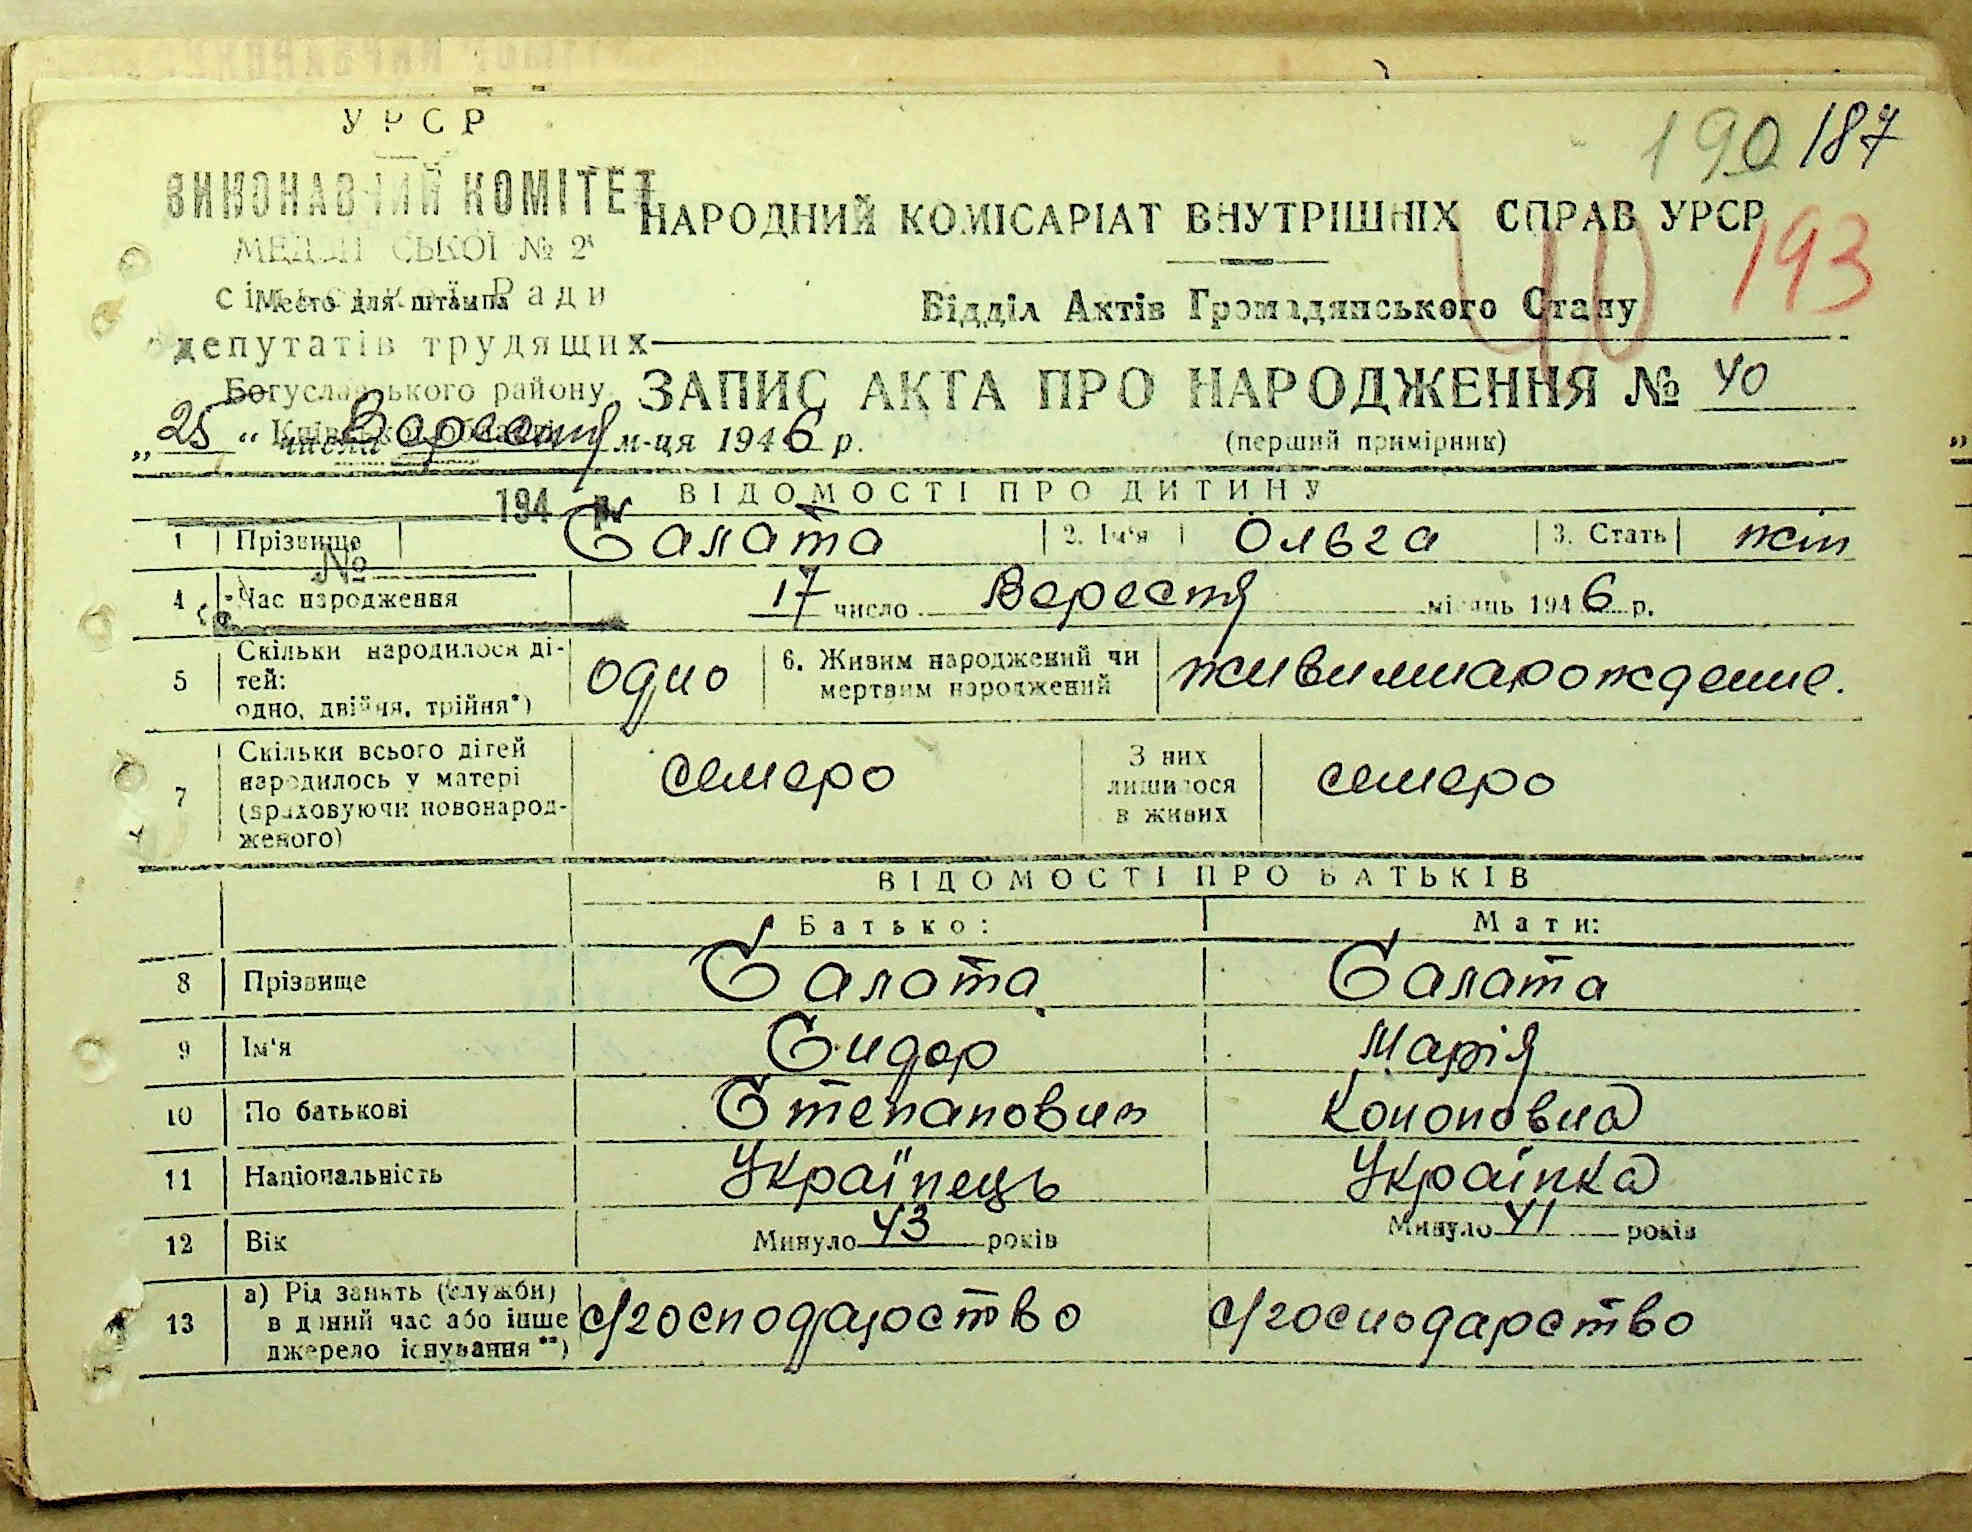 УРСР
190 187
ВИКОНАВЧИЙ КОМІТЕТ
НАРОДНИЙ КОМІСАРІАТ ВНУТРІШНІХ СПРАВ УРСР
193
№ 2
Место для штампа
Ради
Відділ Актів Громадянського Стану
депутатів трудящих
40
Богуславського району
ЗАПИС АКТА ПРО НАРОДЖЕННЯ № 40
„25“ числа Вересня м-ця 1946 р.
(перший примірник)
194 р.
ВІДОМОСТІ ПРО ДИТИНУ
1 Прізвище Салата 2. Ім'я Ольга 3. Стать жін
№
4 Час народження 17 число Вересня місяць 1946 р.
5 Скільки народилося ді-
тей:
одно, двійня, трійня*)
одно
6. Живим народжений чи
мертвим народжений
живимнарождение.
7 Скільки всього дітей
народилось у матері
(враховуючи новонарод-
женого)
семеро
З них
лишилося
в живих
семеро
ВІДОМОСТІ ПРО БАТЬКІВ
Батько: Мати:
8 Прізвище Салата Салата
9 Ім'я Сидор Марія
10 По батькові Степанович Кононовна
11 Національність Українець Українка
12 Вік Минуло 43 років Минуло 41 років
13 а) Рід занять (служби)
в даний час або інше
джерело існування**)
с/господарство с/господарство